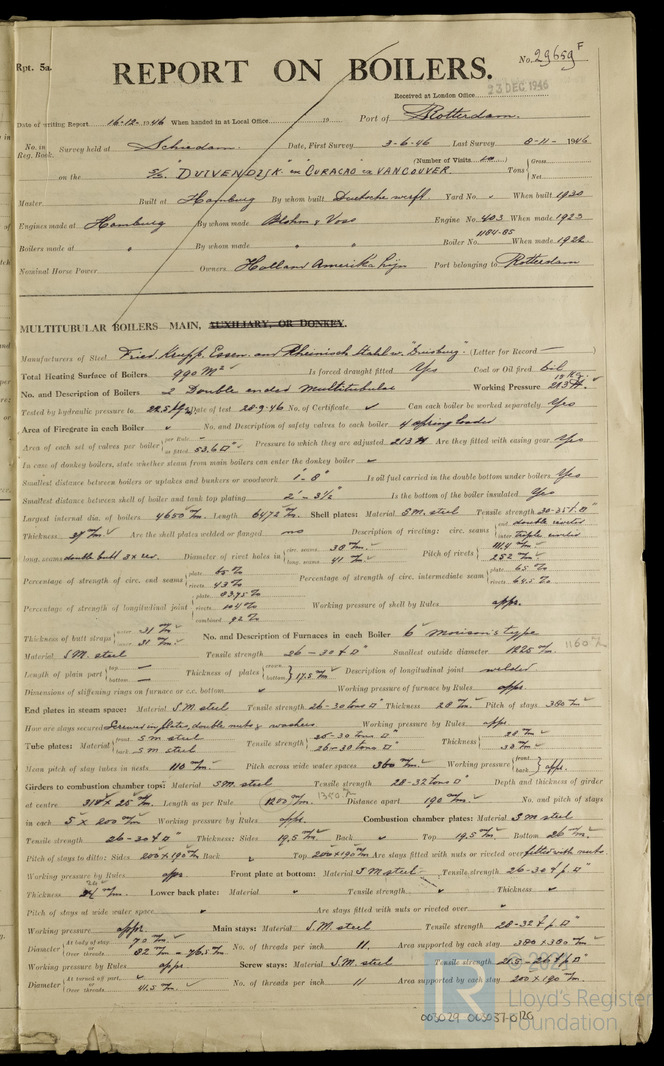 Rpt. 5a.
No. 29659 F
REPORT ON BOILERS.
Received at London Office 23 DEC 1946
Date of writing Report 16-12-1946 When handed in at Local Office 19 Port of Rotterdam.
No. in Reg. Book. Survey held at Schiedam. Date, First Survey 3-6-46 Last Survey 8-11-1946
(Number of Visits )
on the S/S. "DUIVENDIJK" ex CURACAO ex VANCOUVER. Tons Gross Net
Master Built at Hamburg By whom built Deutsche werft. Yard No. When built 1930
Engines made at Hamburg By whom made Blohm & Voss Engine No. 403 When made 1923
1184-85
Boilers made at " By whom made " " Boiler No. When made 1922
Nominal Horse Power Owners Holland Amerika Lijn Port belonging to Rotterdam
MULTITUBULAR BOILERS MAIN, AUXILIARY, OR DONKEY.
Manufacturers of Steel Fried. Krupp. Essen. and Rheinisch Stahl w. "Duisburg" (Letter for Record —
Total Heating Surface of Boilers 990 M² Is forced draught fitted Yes Coal or Oil fired oil
No. and Description of Boilers 2 Double ended Multitubular Working Pressure 213
Tested by hydraulic pressure to Date of test 28-9-46 No. of Certificate Can each boiler be worked separately Yes
Area of Firegrate in each Boiler No. and Description of safety valves to each boiler 4 spring loaded
Area of each set of valves per boiler per Rule as fitted 53.6 □" Pressure to which they are adjusted 213 Are they fitted with easing gear Yes
In case of donkey boilers, state whether steam from main boilers can enter the donkey boiler
Smallest distance between boilers or uptakes and bunkers or woodwork 1'-8" Is oil fuel carried in the double bottom under boilers Yes
Smallest distance between shell of boiler and tank top plating 2'-3½" Is the bottom of the boiler insulated Yes
Largest internal dia. of boilers 4650 m/m. Length 6472 m/m. Shell plates: Material S.M. steel Tensile strength 30-35
Thickness m/m. Are the shell plates welded or flanged no Description of riveting: circ. seams end double riveted inter triple riveted
long. seams double butt 3x riv. Diameter of rivet holes in circ. seams 38 m/m. long. seams 41 m/m. Pitch of rivets 111.4 m/m. 252 m/m.
Percentage of strength of circ. end seams plate 65 % rivets 43 % Percentage of strength of circ. intermediate seam plate 65 % rivets 64.5 %
Percentage of strength of longitudinal joint plate 83.75 % rivets 104 % combined 92 % Working pressure of shell by Rules appr.
Thickness of butt straps outer 31 m/m inner 31 m/m. No. and Description of Furnaces in each Boiler 6 Morison's type
Material S.M. steel Tensile strength 26-30 Smallest outside diameter 1225 m/m. 1160
Length of plain part top — bottom — Thickness of plates crown bottom 17.5 m/m. Description of longitudinal joint welded.
Dimensions of stiffening rings on furnace or c.c. bottom Working pressure of furnace by Rules appr.
End plates in steam space: Material S.M. steel Tensile strength 26-30 tons □" Thickness 28 m/m. Pitch of stays 380 m/m.
How are stays secured Screwed in plates, double nuts & washers Working pressure by Rules appr.
Tube plates: Material front S M steel back S M steel Tensile strength 26-30 tons □" 26-30 tons □" Thickness 28 m/m.
Mean pitch of stay tubes in nests 110 m/m. Pitch across wide water spaces 360 m/m. Working pressure front back appr.
Girders to combustion chamber tops: Material S.M. steel Tensile strength 28-32 tons □" Depth and thickness of girder
at centre x 25 m/m. Length as per Rule 1200 m/m. Distance apart 190 m/m. No. and pitch of stays
in each 5 x 200 m/m Working pressure by Rules appr. Combustion chamber plates: Material S.M. steel
Tensile strength 26-30 □" Thickness: Sides 19.5 m/m. Back Top 19.5 m/m. Bottom 26 m/m.
Pitch of stays to ditto: Sides 200 x 190 m/m Back Top 200 x 190 m/m Are stays fitted with nuts or riveted over fitted with nuts
Working pressure by Rules appr. Front plate at bottom: Material S M steel Tensile strength 26-30 □"
Thickness m/m. Lower back plate: Material Tensile strength Thickness
Pitch of stays at wide water space Are stays fitted with nuts or riveted over
Working pressure appr. Main stays: Material S.M. steel Tensile strength 28-32 □"
Diameter At body of stay 72 m/m. or Over threads 82 m/m – 76.5 m/m No. of threads per inch 11. Area supported by each stay 380 x 380 m/m.
Working pressure by Rules appr Screw stays: Material S.M. steel Tensile strength
Diameter At turned off part or Over threads 41.5 m/m. No. of threads per inch 11 Area supported by each stay 200 x 190 m/m.
003029-003037-0120
© 2021
Lloyd's Register
Foundation